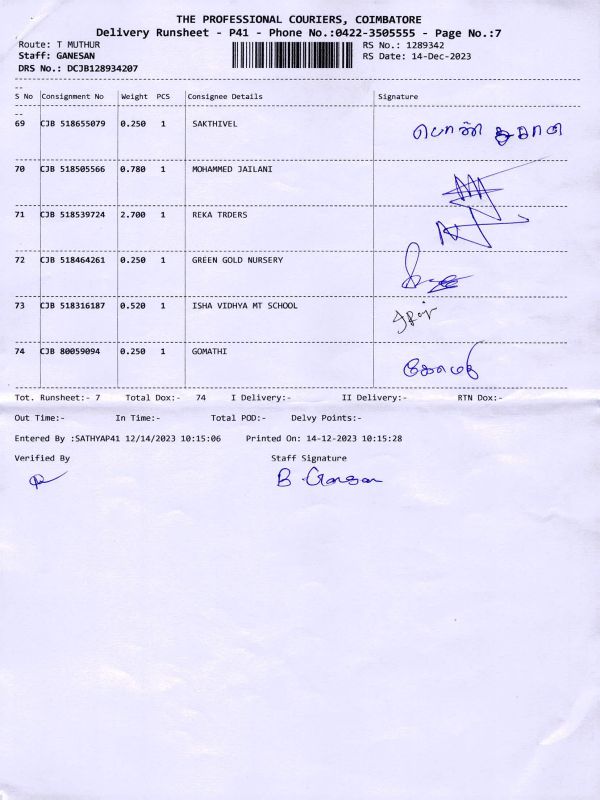 THE PROFESSIONAL COURIERS, COIMBATORE
Delivery Runsheet - P41 - Phone No.:0422-3505555 - Page No.:7
Route: T MUTHUR RS No.: 1289342
Staff: GANESAN RS Date: 14-Dec-2023
DRS No.: DCJB128934207
S No Consignment No Weight PCS Consignee Details Signature
69 CJB 518655079 0.250 1 SAKTHIVEL
70 CJB 518505566 0.780 1 MOHAMMED JAILANI
71 CJB 518539724 2.700 1 REKA TRDERS
72 CJB 518464261 0.250 1 GREEN GOLD NURSERY
73 CJB 518316187 0.520 1 ISHA VIDHYA MT SCHOOL
74 CJB 80059094 0.250 1 GOMATHI கோமதி
Tot. Runsheet:- 7 Total Dox:- 74 I Delivery:- II Delivery:- RTN Dox:-
Out Time:- In Time:- Total POD:- Delvy Points:-
Entered By :SATHYAP41 12/14/2023 10:15:06 Printed On: 14-12-2023 10:15:28
Verified By Staff Signature
B. Ganesan